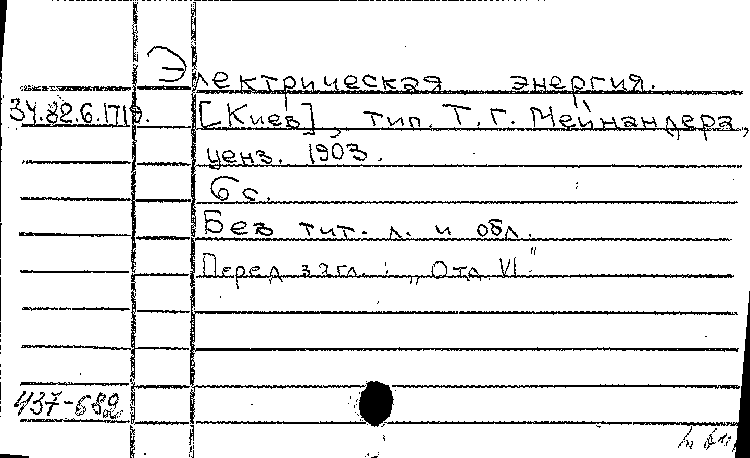 Электрическая энергия.
34.82.6.1719. [Киев], тип. Т. Г. Мейнандера,
ценз. 1903.
6 с.
Без тит. л. и обл.
Перед загл.: „Отд. VI"
437-682